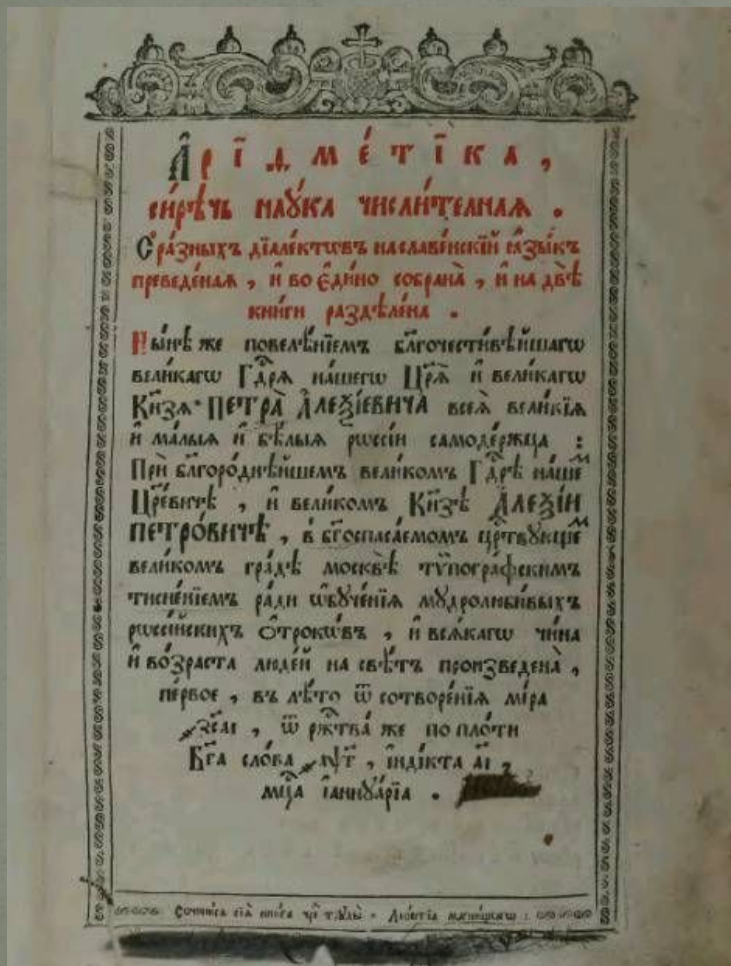 А҆рїѳме́тїка,
си́рѣчь наꙋ́ка числи́телная.
С̾ ра́зныхъ дїале́ктѡвъ на славе́нскїй ꙗ҆зы́къ
преведе́ная, и҆ во є҆ди́но собрана̀, и҆ на двѣ̀
кни́ги раздѣле́на.
Ны́нѣ же повелѣ́нїемъ бл҃гочести́вѣйшагѡ
вели́кагѡ Гдⷭ҇рѧ на́шегѡ Цр҃ѧ̀ и҆ вели́кагѡ
Кн҃зѧ ПЕТРА̀ А҆ЛЕѮІЕВИЧА всеѧ̀ вели́кїѧ
и҆ ма́лыѧ и҆ бѣ́лыѧ рѡссі́и самоде́ржца:
Прѝ бл҃горо́днѣйшемъ вели́комъ Гдⷭ҇рѣ̀ на́шеⷨ
Цр҃е́вичѣ, и҆ вели́комъ Кн҃зѣ А҆ЛЕѮІ́И
ПЕТРО́ВИЧѢ, в̾ бг҃оспаса́емомъ црⷭ҇твꙋющеⷨ
вели́комъ гра́дѣ москвѣ̀ тѷпогра́фскимъ
тисне́нїемъ ра́ди ѡ҆бꙋче́нїѧ мꙋдролюби́выхъ
рѡссі́йскихъ ѻ҆́трокѡвъ, и҆ всѧ́кагѡ чи́на
и҆ во́зраста люде́й на свѣ́тъ произведена̀,
пе́рвое, въ лѣ́то ѿ сотворе́нїѧ мі́ра
҂зс҃аі, ѿ ржⷭ҇тва́ же по пло́ти
Бг҃а сло́ва ҂аѱ҃г, і҆ндїкта а҃і,
мцⷭ҇а і҆аннꙋа́рїа.
Сочини́сѧ сїѧ̀ кни́га чрⷥ̾ трꙋды̀ Лео́нтїа магни́цкагѡ: